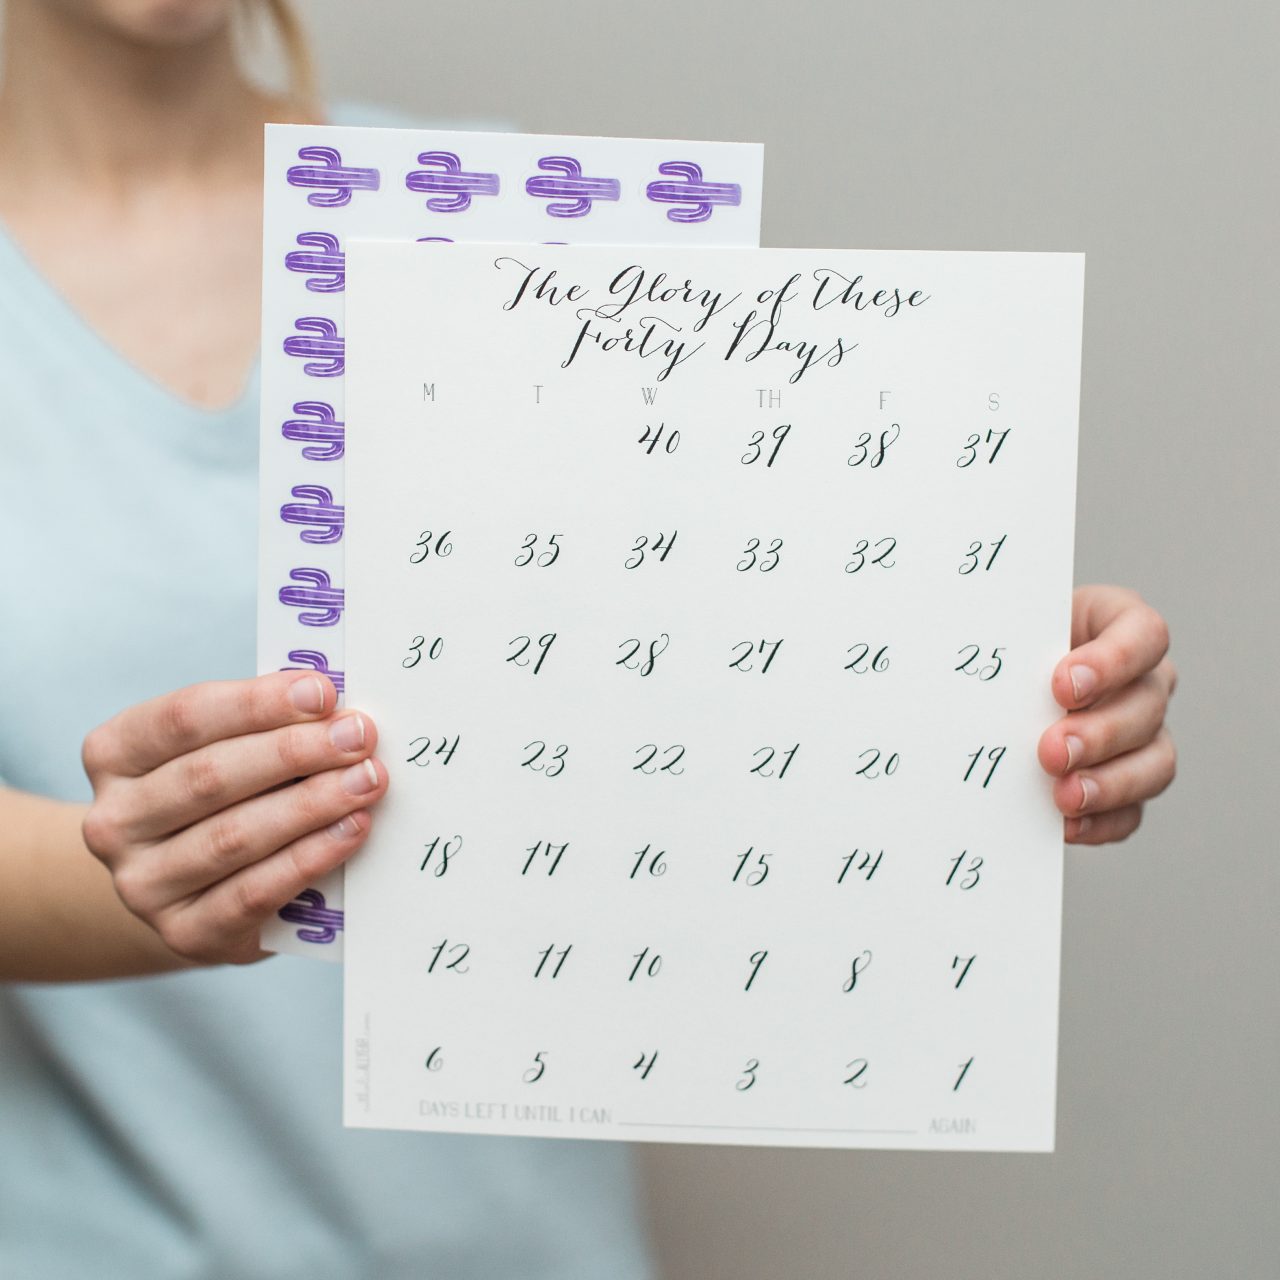 The Glory of These
Forty Days
M T W TH F S
40 39 38 37
36 35 34 33 32 31
30 29 28 27 26 25
24 23 22 21 20 19
18 17 16 15 14 13
12 11 10 9 8 7
6 5 4 3 2 1
DAYS LEFT UNTIL I CAN ____________ AGAIN